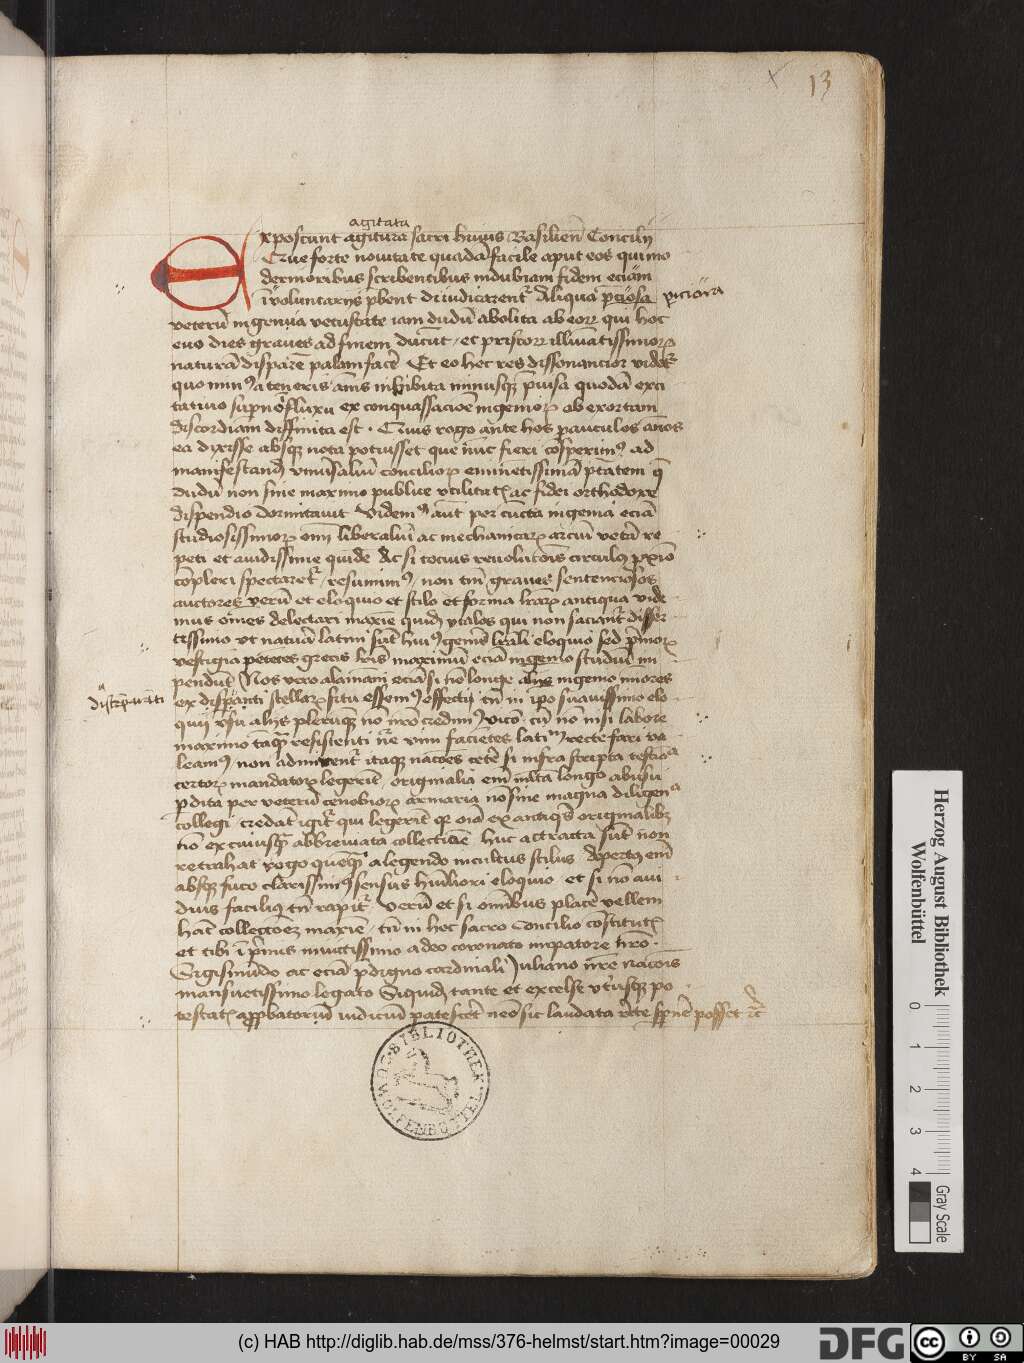 13
agitata
Exposcunt agitura sacri huius Basilien Concilij
Que forte novitate quadã facile aput eos qui mo
dernioribus scribentibus indubiam fidem eciam
ĩvoluntarijs p̃bent diiudicarent᷑ Aliqua
viciata
veterũ ingenia vetustate iam dudũ abolita ab eorum qui hoc
evo dies graves ad finem ducũt et priscorum illuminatissimorum
naturã disparẽ palam facẽ Et eo hec res dissonancior videt᷑
quo minus a teneris annis inhibita minusque quodã exci
tativo ex conquassacioẽ ingeniorum ab exortam
discordiam diffinita est. Quis rogo ante hos pauculos annos
ea dixisse absque nota potuisset que nũc fieri cõsperimus ad
manifestand universaliũ conciliorum eminẽtissimã ptatem que
dudũ non sine maximo publice utilitatis ac fidei orthodoxe
dispendio dormitavit Videmus aũt per cũcta ingenia eciã
studiosissimorum omni liberaliũ ac mechanicarum arciũ vetera re
peti et avidissime quide Ac si tocius revolucõis circulus
cõpleri spectaret᷑ resumimus non tm̃ graves sentenciosos
auctores verũ et eloquio et stilo et forma lrarum antiqua vide
mus oẽs delectari maxĩe quidem ytalos qui non
tissimo ut natura latini sunt huius eloquio sed priorum
vestigia petẽtes grecis lris maximũ eciã ingenio studiũ im
pendũt Nos vero alamani eciã si nõ longe alijs ingenio mores
ex disparanti stellarum situ essemus effectu tñ in ipo suavissimo elo
quii usu alijs plerũque nõ credimus cũ nõ nisi labore
maximo tãquã resistenti ñre vim faciẽtes latinus recte fari va
leamus non admirent᷑ itaque nacões cetẽ si infra scripta testia
certorum mandatorum legerint originalia em̃ longo abusu
perdita per veterũ cenobiorum armaria nõ sine magna diligena
collegi credat igit᷑ qui legerit quod oĩa ex antiquis originalibus
abbreviata collectiõe huc attracta sunt non
retrahat rogo quẽque a legendo incultus stilus em̃
absque fuco clarissimus sensus humiliori eloquio et si no avi
dius facilius tñ capit᷑ Verũ et si omĩbus placẽ vellem
hac collectõez maxĩe tñ in hoc sacro Concilio cõstitutis
et tibi ĩ primis invictissimo a deo coronato impatore
Sigismũdo ac eciã pdigno cardinali Juliano nacõis
mansuetissimo legato Siquidem tante et excelse utriusque po
testatis approbatoriũ iudiciũ patesceret laudata posset etc
BIBLIOTHEK WOLFENBÜTTEL
Herzog August Bibliothek
Wolfenbüttel
0 1 2 3 4
Gray Scale
(c) HAB http://diglib.hab.de/mss/376-helmst/start.htm?image=00029
DFG
cc BY SA